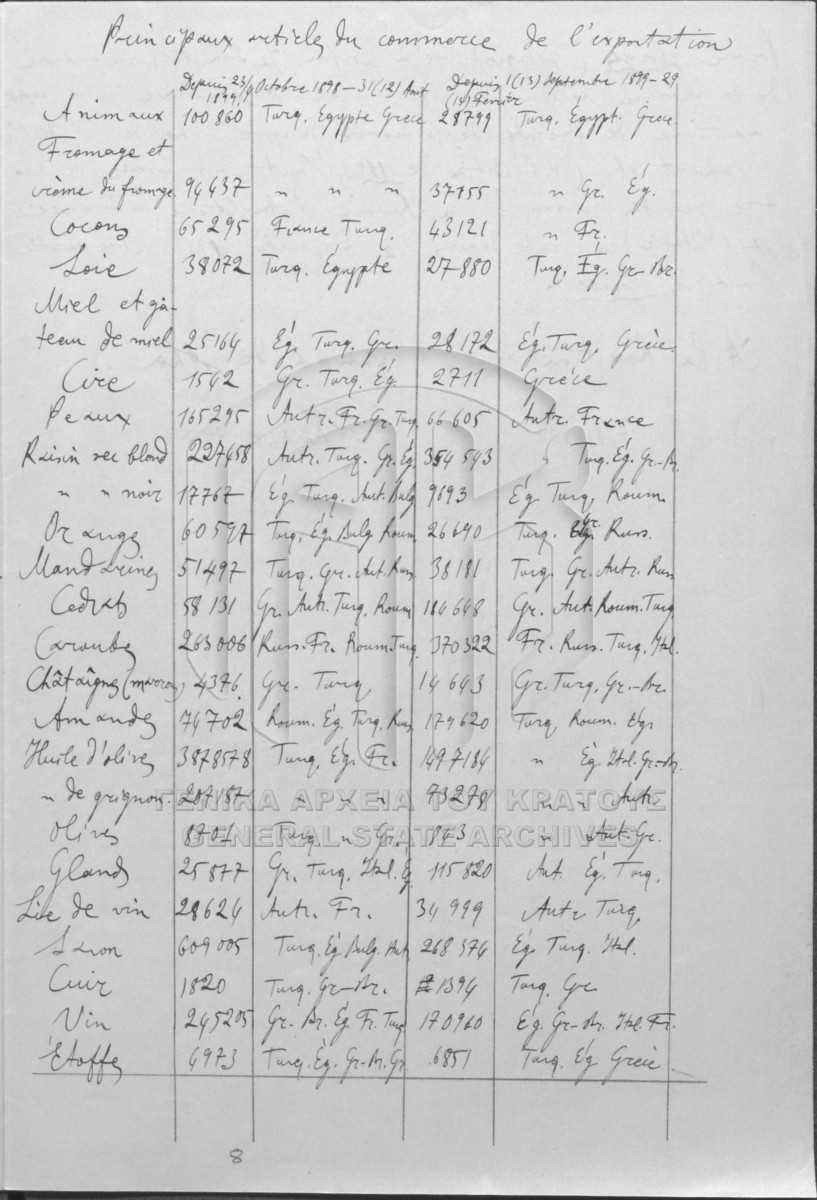 Principaux articles du commerce de l'exportation
Depuis 23/4 Octobre 1898 — 31 (12) Août 1899 Depuis 1 (13) Septembre 1899 - 29 (13) Février
Animaux 100860 Turq. Égypte Grèce 28799 Turq. Égypt. Grèce
Fromage et
crème du fromage 94437 " " " 37155 " Gr. Ég.
Cocons 65295 France Turq. 43121 " Fr.
Soie 38072 Turq. Égypte 27880 Turq. Ég. Gr-Br.
Miel et gâ-
teau de miel 25164 Ég. Turq. Gr. 28172 Ég. Turq. Grèce
Cire 1542 Gr. Turq. Ég. 2711 Grèce
Peaux 165295 Autr. Fr. Gr. Turq. 66605 Autr. France
Raisin sec blond 227458 Autr. Turq. Gr. Ég. 354543 " Turq. Ég. Gr-Br.
" " noir 17767 Ég. Turq. Aut. Bulg. 9693 Ég. Turq. Roum.
Oranges 60597 Turq. Ég. Bulg. Roum. 26690 Turq. Gr. Russ.
Mandarines 51497 Turq. Gr. Aut. Russ. 38181 Turq. Gr. Autr. Russ
Cedrats 58131 Gr. Autr. Turq. Roum 184648 Gr. Aut. Roum. Turq
Caroubes 263006 Russ. Fr. Roum. Turq. 370322 Fr. Russ. Turq. Ital.
Châtaîgnes (marrons) 4376 Gr. Turq. 14643 Gr. Turq. Gr-Br.
Amandes 74702 Roum. Ég. Turq. Russ. 179620 Turq. Roum. Ég.
Huile d'olives 3878578 Turq. Ég. Fr. 1497184 " Ég. Ital. Gr-Br.
" de grignon 207187 " " " 73278 " " Autr.
Olives 8701 Turq. " Gr. 843 " Aut. Gr.
Glands 25877 Gr. Turq. Ital. Ég. 115820 Aut. Ég. Turq.
Lie de vin 28624 Autr. Fr. 34999 Autr Turq.
Savon 609005 Turq. Ég. Bulg. Aut. 268374 Ég. Turq. Ital.
Cuir 1820 Turq. Gr-Br. 1394 Turq. Gr.
Vin 245205 Gr-Br. Ég. Fr. Turq 170960 Ég. Gr-Br. Ital. Fr.
Étoffes 4973 Turq. Ég. Gr-Br. Gr. 6851 Turq. Ég Grèce
ΓΕΝΙΚΑ ΑΡΧΕΙΑ ΤΟΥ ΚΡΑΤΟΥΣ
GENERAL STATE ARCHIVES
8